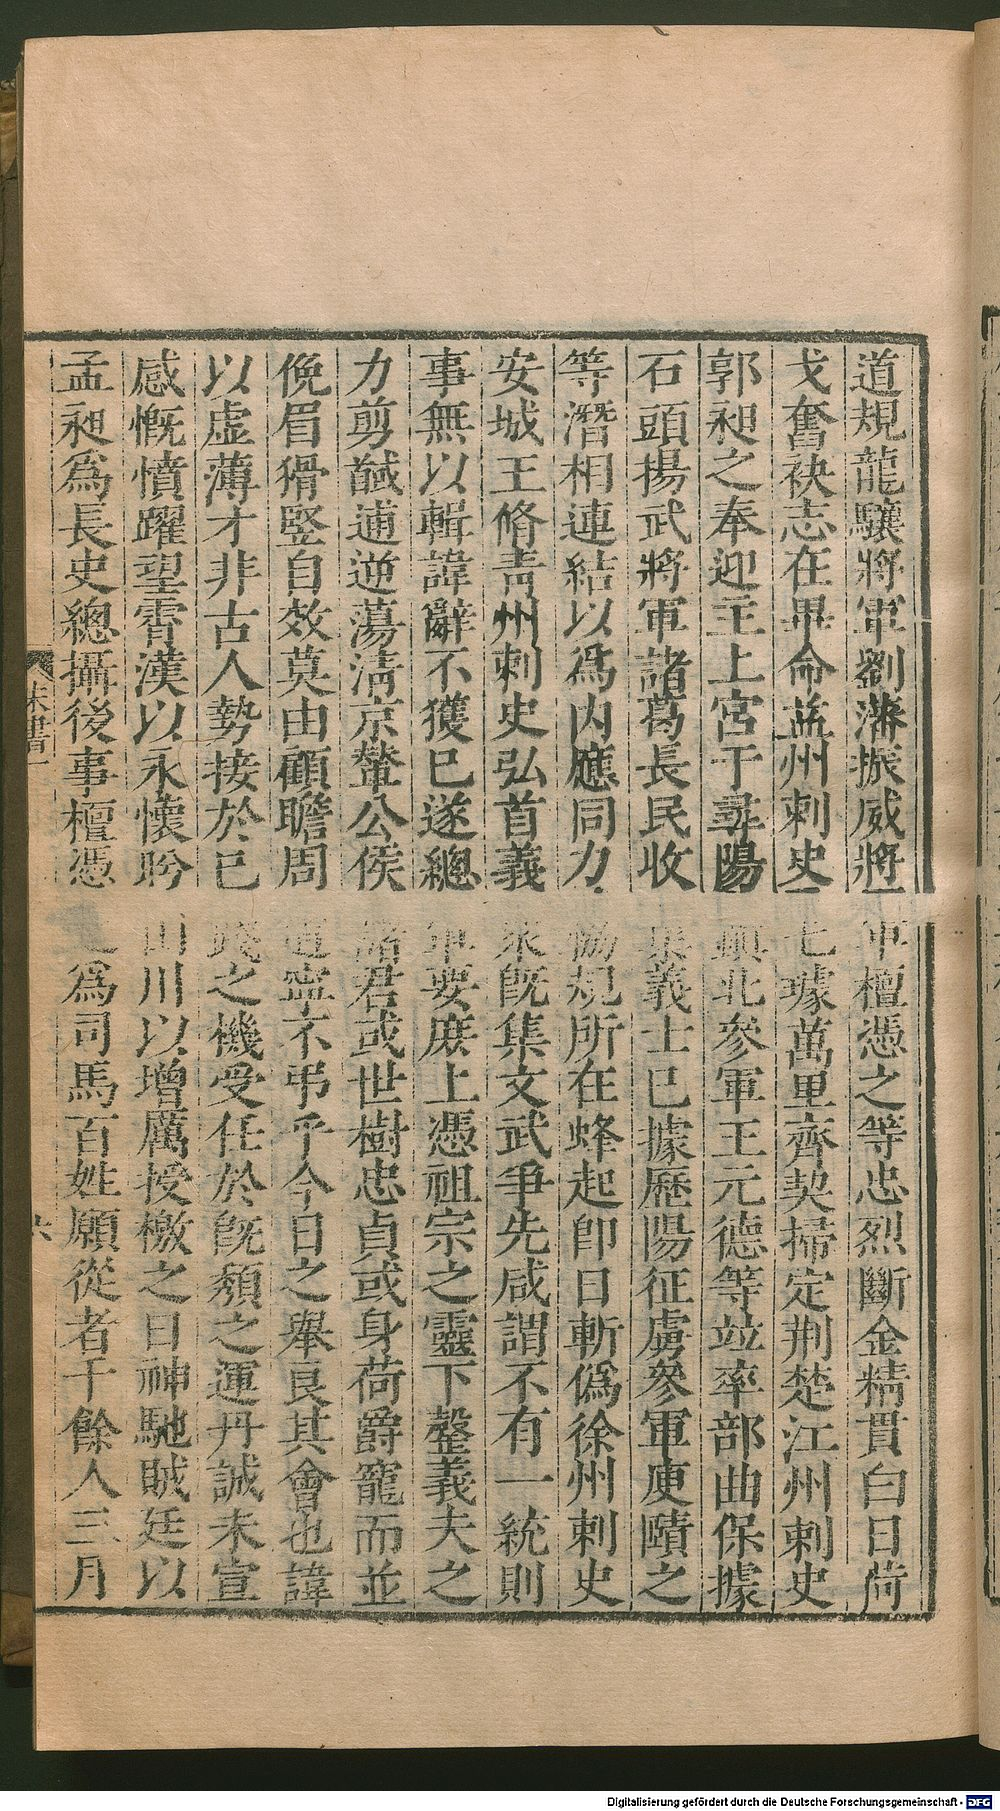 道規龍驤將軍劉藩振威將軍檀憑之等忠烈斷金精貫白日荷
戈奮袂志在畢命益州刺史毛璩萬里齊契掃定荊楚江州刺史
郭昶之奉迎主上宮于尋陽鎮北參軍王元德等竝率部曲保據
石頭揚武將軍諸葛長民收集義士已據歷陽征虜參軍庾賾之
等潛相連結以爲內應同力協規所在蜂起卽日斬僞徐州刺史
安城王脩靑州刺史弘首義衆旣集文武爭先咸謂不有一統則
事無以輯諱辭不獲已遂總軍要庶上憑祖宗之靈下罄義夫之
力剪馘逋逆蕩淸京輦公侯諸君或世樹忠貞或身荷爵寵而並
俛眉猾豎自效莫由顧瞻周道寧不弔乎今日之舉良其會也諱
以虛薄才非古人勢接於已踐之機受任於旣頹之運丹誠未宣
感慨憤躍望霄漢以永懷盻山川以增厲授檄之日神馳賊廷以
孟昶爲長史總攝後事檀憑之爲司馬百姓願從者千餘人三月
宋書一
六
Digitalisierung gefördert durch die Deutsche Forschungsgemeinschaft - DFG